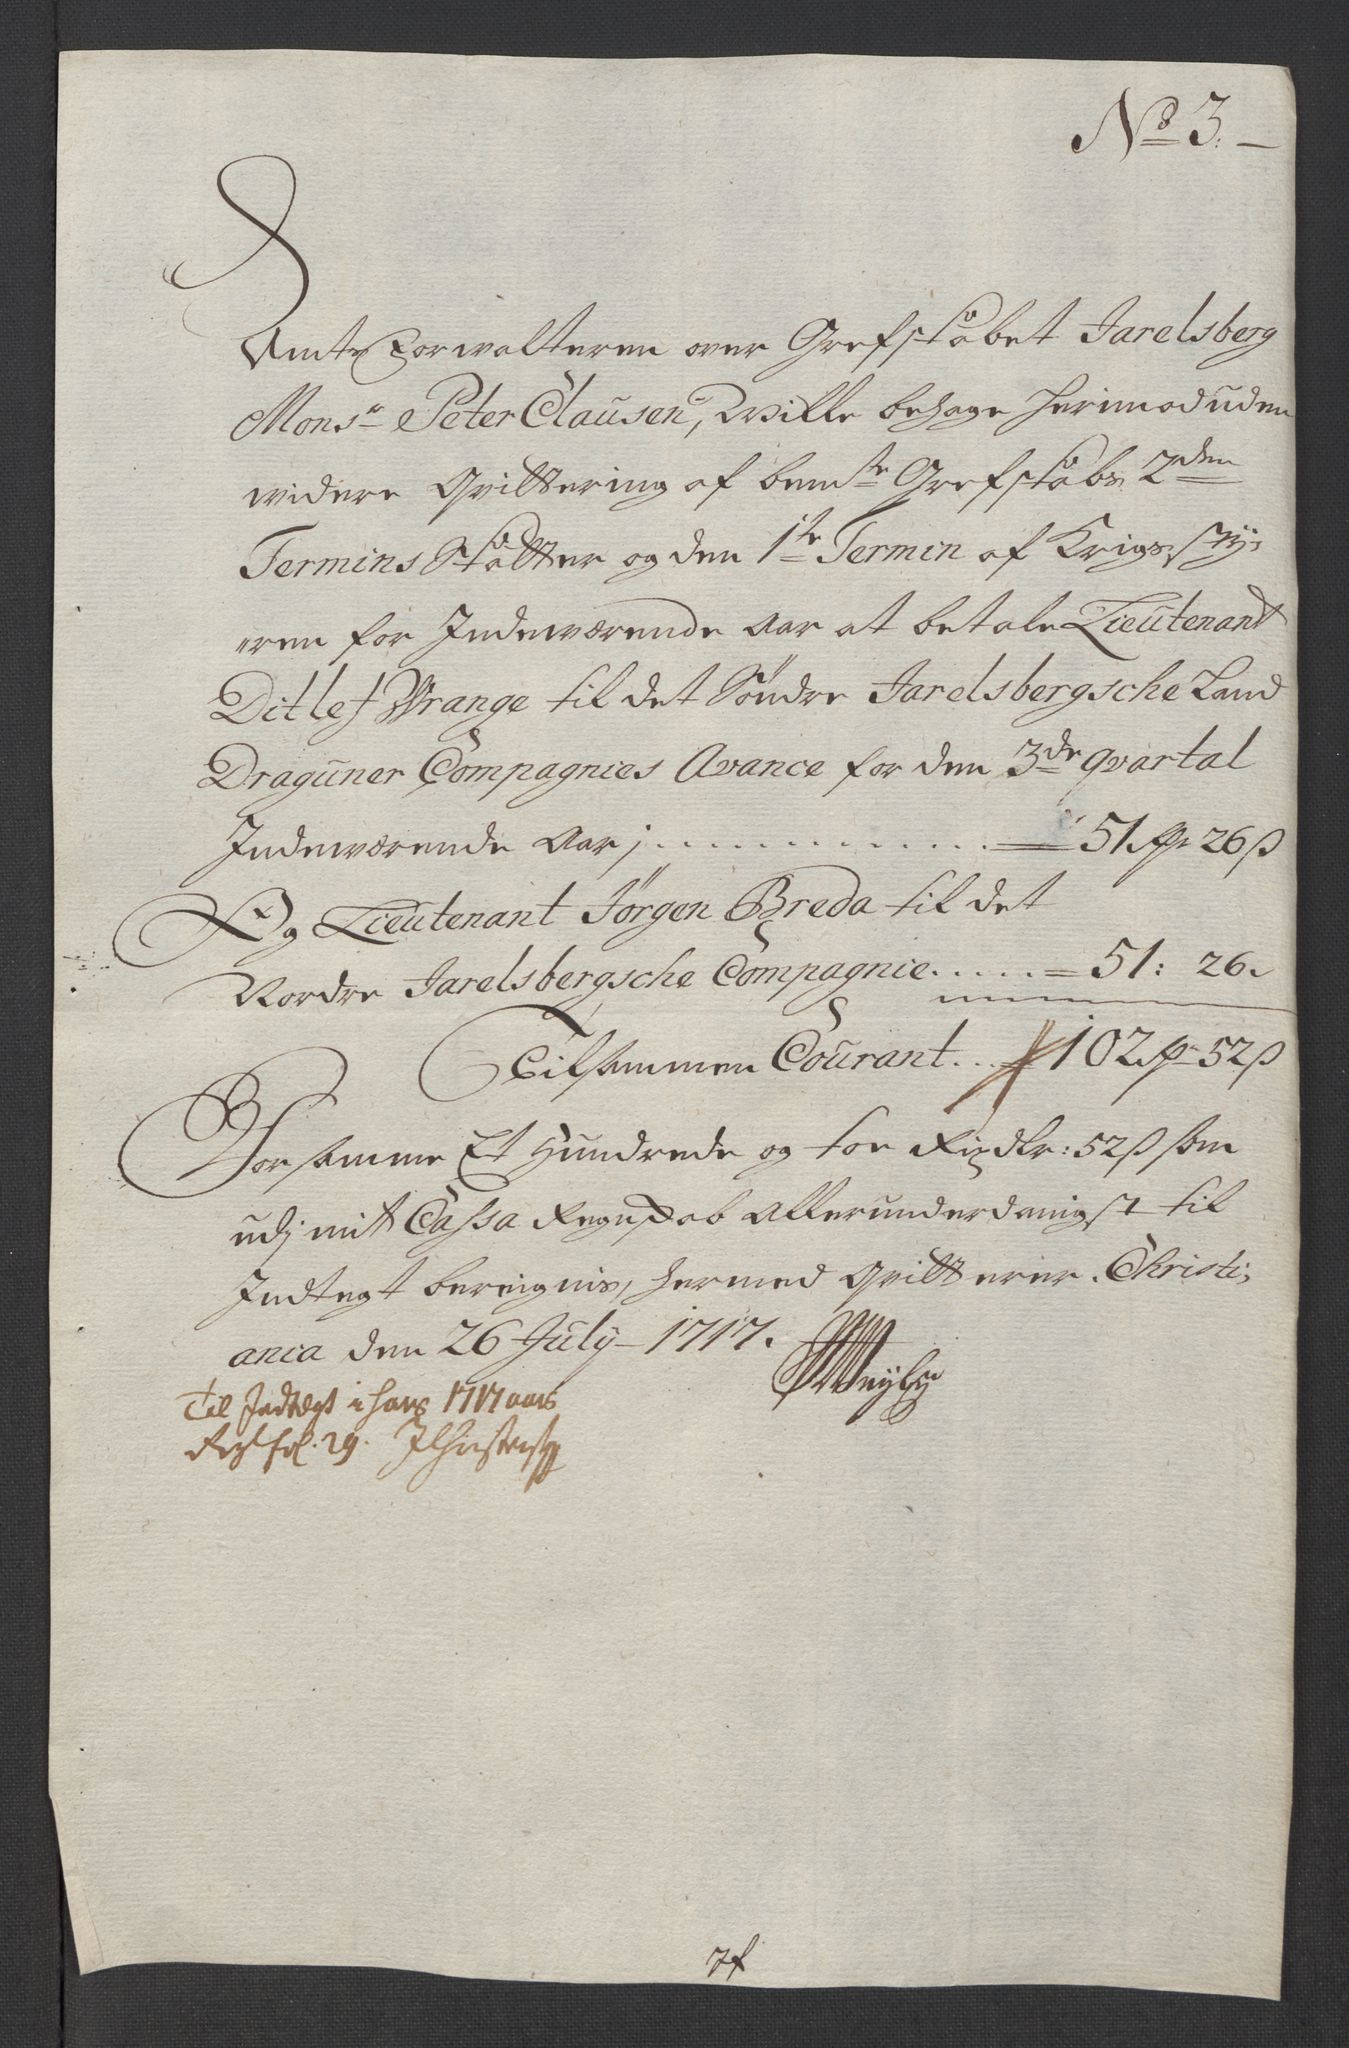 No 3.
Amts Forwalteren over Grefskabet Jarelsberg
Monsr Peter Clausen, Wille behage herimod uden
widere Qvittering af bemte Grefskabs 2den
Termins Skatter og den 1te Termin af Krigs sty-
ren for Indeværende Aar at betale Lieutenant
Ditlef Wrange til det Söndre Jarelsbergsche Land
Draguner Compagnies Avance for den 3de qvartal
Indeværende Aar, 51 26 ß
Og Lieutenant Jörgen Breda til det
Nordre Jarelsbergsche Compagnie 51: 26.
Tilsammen Courant 102 52 ß
For samme Et Hundrede og toe Rixdlr: 52 ß som
udj mit Cassa Regnskab Allerunderdanigst til
Indtegt bereignis, hermed Qvitterer. Christi-
ania den 26 July 1717.
Til Indtegt i 1717 aars
fol. 29.